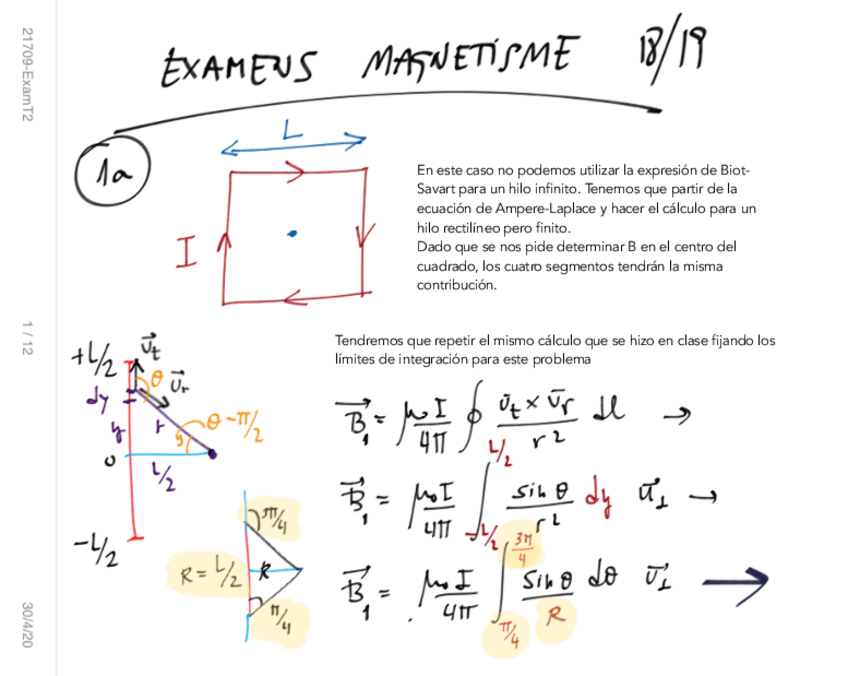 21709-ExamT2
1 / 12
30/4/20
EXAMENS MAGNETISME 18/19
1a
L
I
En este caso no podemos utilizar la expresión de Biot-
Savart para un hilo infinito. Tenemos que partir de la
ecuación de Ampere-Laplace y hacer el cálculo para un
hilo rectilíneo pero finito.
Dado que se nos pide determinar B en el centro del
cuadrado, los cuatro segmentos tendrán la misma
contribución.
Tendremos que repetir el mismo cálculo que se hizo en clase fijando los
límites de integración para este problema
+L/2
u⃗t
θ
u⃗r
dy
y
r
θ-π/2
0
L/2
-L/2
3π/4
R = L/2
R
π/4
B⃗₁ = μ₀I/4π ∮ u⃗t × u⃗r / r² dl →
B⃗₁ = μ₀I/4π ∫_{-L/2}^{L/2} sin θ / r² dy u⃗⊥ →
B⃗₁ = μ₀I/4π ∫_{π/4}^{3π/4} sin θ / R dθ u⃗⊥ →